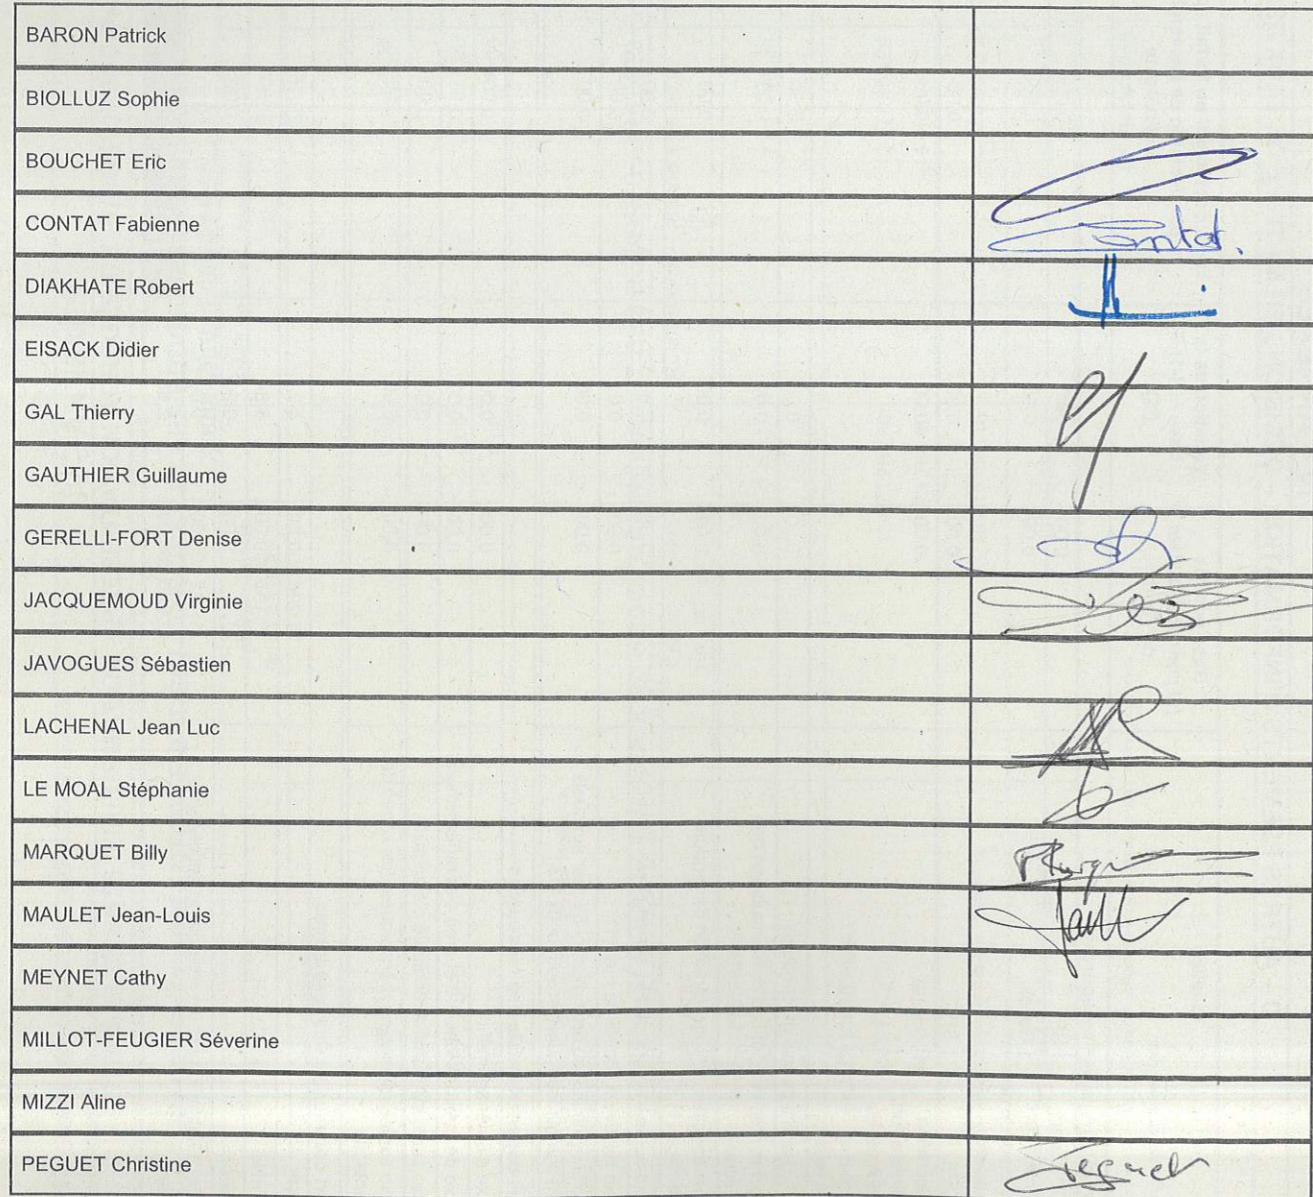 BARON Patrick
BIOLLUZ Sophie
BOUCHET Eric
CONTAT Fabienne
Contat.
DIAKHATE Robert
EISACK Didier
GAL Thierry
GAUTHIER Guillaume
GERELLI-FORT Denise
JACQUEMOUD Virginie
JAVOGUES Sébastien
LACHENAL Jean Luc
LE MOAL Stéphanie
MARQUET Billy
MAULET Jean-Louis
MEYNET Cathy
MILLOT-FEUGIER Séverine
MIZZI Aline
PEGUET Christine
Peguet